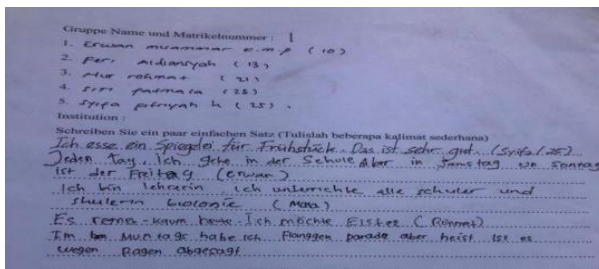 Gruppe Name und Matrikelnummer : 1
1. Erwan muammar e.m.p (10)
2. Feri Aldiansyah (13)
3. Nur rohmat (21)
4. Siti fadmala (23)
5. Syifa fitriyah h (25).
Institution :
Schreiben Sie ein paar einfachen Satz (Tulislah beberapa kalimat sederhana)
Ich esse ein Spiegelei für Frühstück. Das ist sehr gut. (Syifa/25)
Jeden Tag, Ich gehe in der Schule Aber in Samstag un Sonnag
ist der Freitag (Erwan)
Ich bin lehrerin. ich unterrichte alle schuler und
shulerin biolonie (Mala)
Es Ich möchte Eistee (Rohmat)
Im Muntags habe ich Flanggen parade aber heist ist es
wegen Ragen abgesagt